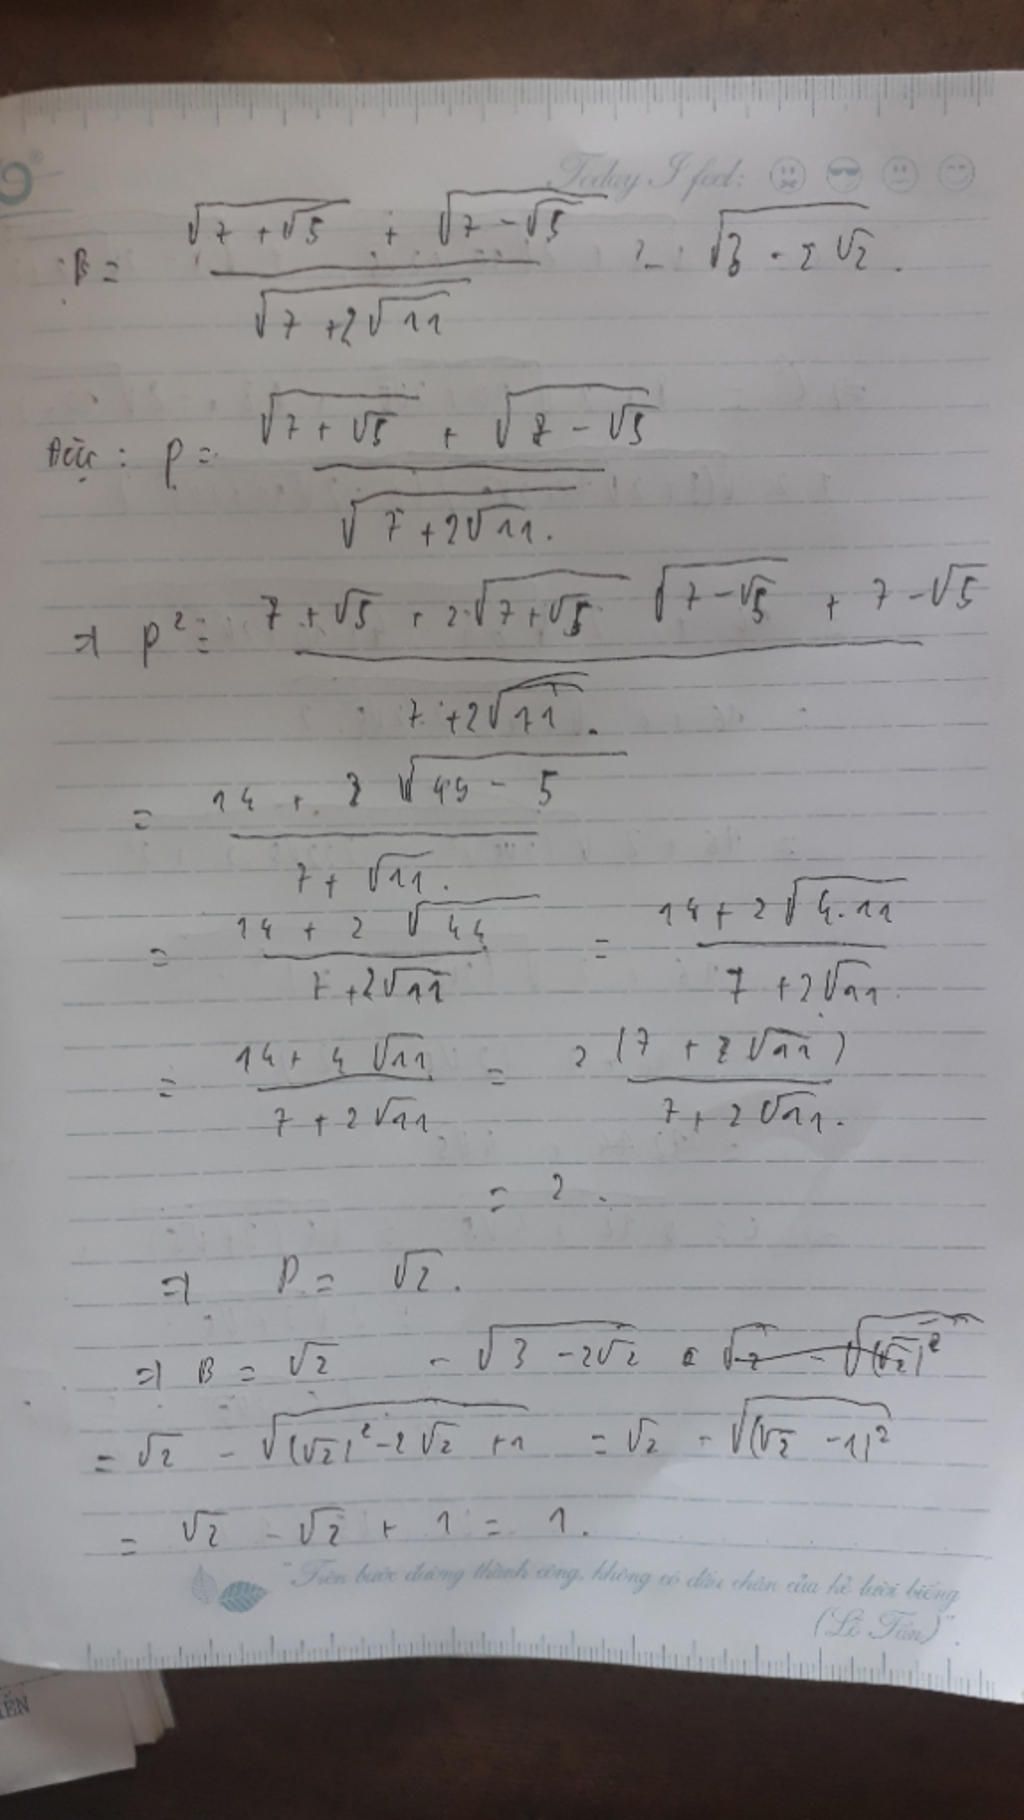 Today I feel:
B = \frac{\sqrt{7+\sqrt{5}} + \sqrt{7-\sqrt{5}}}{\sqrt{7+2\sqrt{11}}} - \sqrt{3-2\sqrt{2}}.
Đặt : P = \frac{\sqrt{7+\sqrt{5}} + \sqrt{7-\sqrt{5}}}{\sqrt{7+2\sqrt{11}}}.
⇒ P² = \frac{7+\sqrt{5} + 2\sqrt{7+\sqrt{5}} \sqrt{7-\sqrt{5}} + 7-\sqrt{5}}{7+2\sqrt{11}}.
= \frac{14 + 2\sqrt{49-5}}{7+\sqrt{11}}.
= \frac{14 + 2\sqrt{44}}{7+2\sqrt{11}} = \frac{14+2\sqrt{4.11}}{7+2\sqrt{11}}
= \frac{14+4\sqrt{11}}{7+2\sqrt{11}} = \frac{2(7+2\sqrt{11})}{7+2\sqrt{11}}.
= 2.
⇒ P = \sqrt{2}.
⇒ B = \sqrt{2} - \sqrt{3-2\sqrt{2}}
= \sqrt{2} - \sqrt{(\sqrt{2})²-2\sqrt{2}+1} = \sqrt{2} - \sqrt{(\sqrt{2}-1)²}
= \sqrt{2} - \sqrt{2} + 1 = 1.
"Trên bước đường thành công, không có dấu chân của kẻ lười biếng
(Lỗ Tấn)".